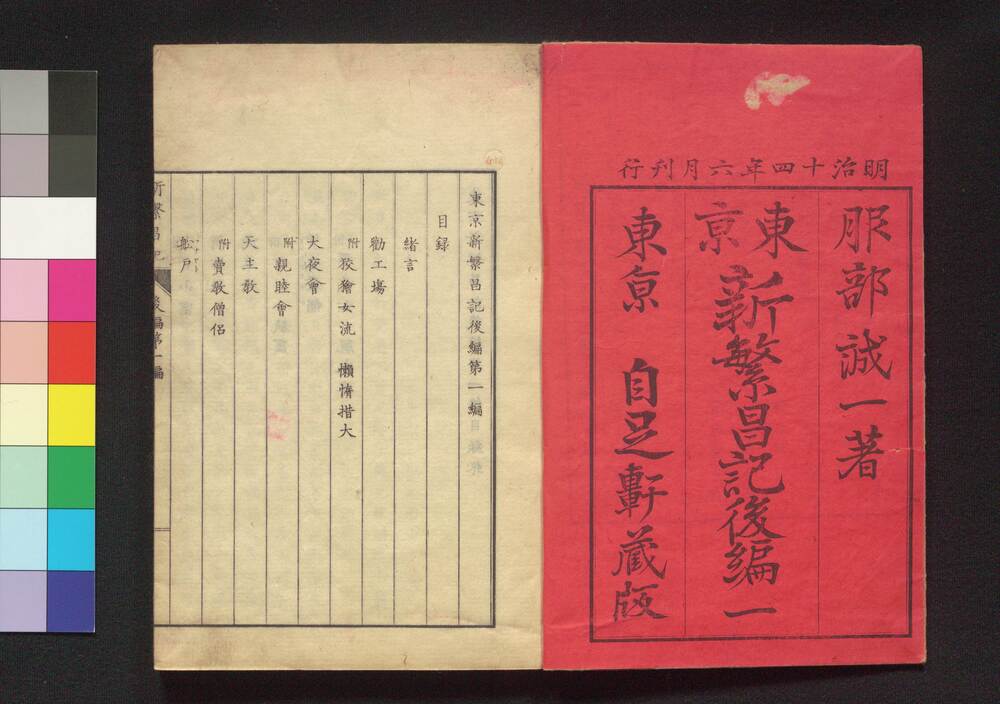 明治十四年六月刊行
服部誠一著
東京新繁昌記後編一
東京 自足軒蔵版
東京新繁昌記後編第一編
目録
緒言
勸工場
附狡獪女流 懶惰措大
大夜會
附親睦會
天主教
附賣教僧侶
船戸
新繁昌記 後編第一編